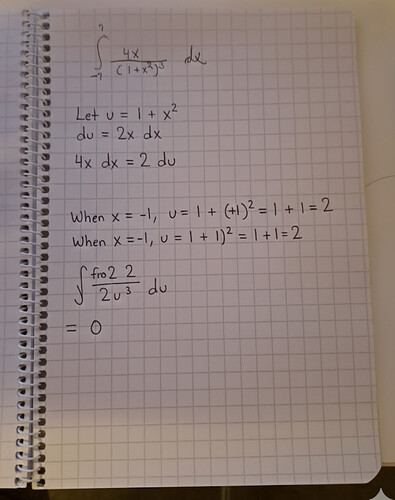 ∫₋₁¹ 4x / (1+x²)³ dx
Let u = 1 + x²
du = 2x dx
4x dx = 2 du
When x = -1, u = 1 + (+1)² = 1 + 1 = 2
When x = -1, u = 1 + 1)² = 1 + 1 = 2
∫ fro2 2 / 2u³ du
= 0